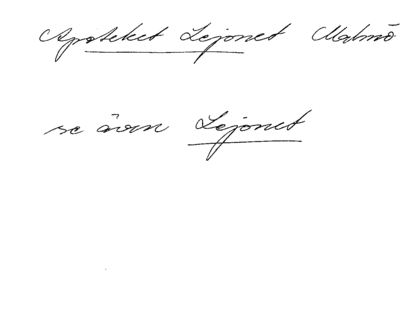 Apoteket Lejonet Malmö
se även Lejonet